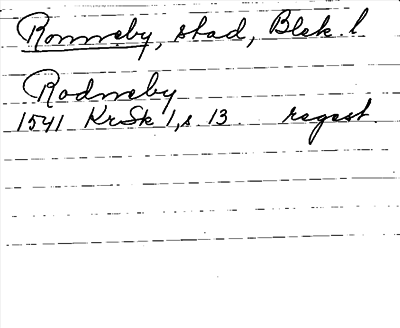 Ronneby, stad, Blek. l
Rodneby
1541 KrSk 1, s 13. regest.